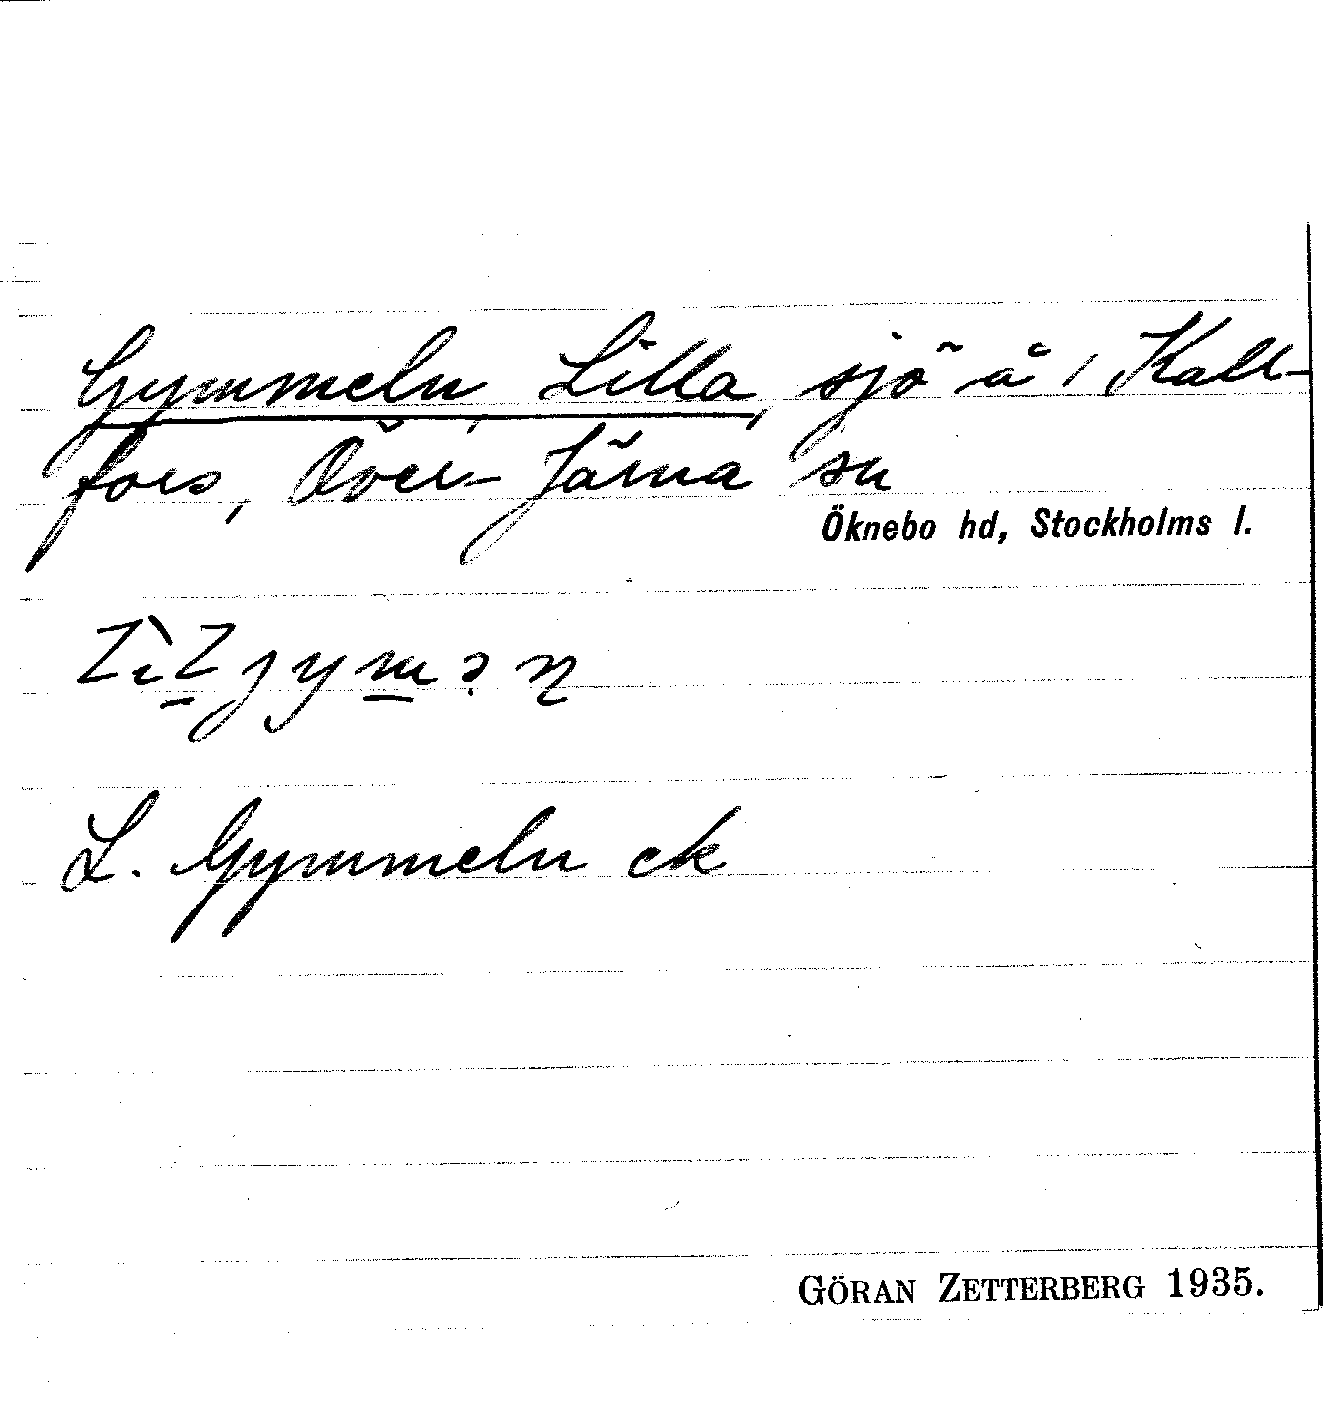 Gymmeln, Lilla, sjö å 1 Kall-
fors, Över-Järna sn
Öknebo hd, Stockholms l.
L. Gymmeln ek
GÖRAN ZETTERBERG 1935.